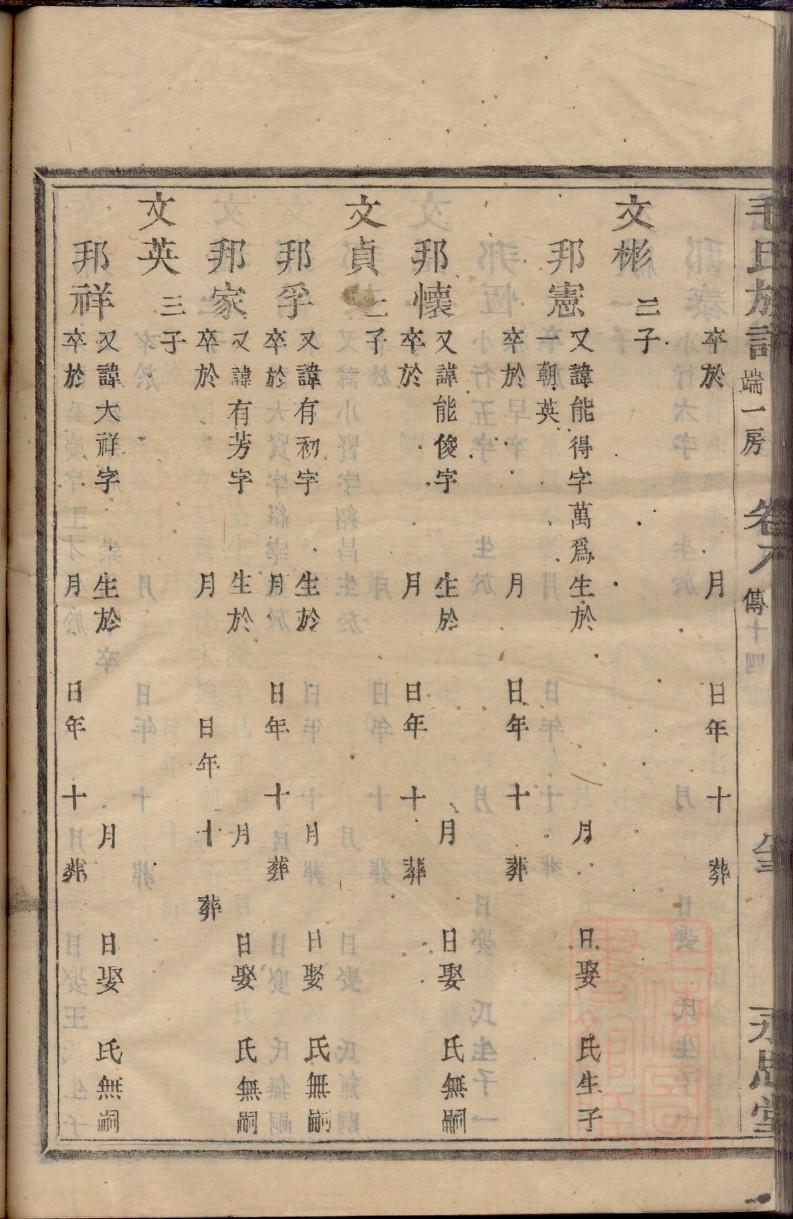 毛氏族譜 端一房 卷八 傳十四 永思堂
卒於 月 日年 十 葬
文彬 二子
邦憲 又諱能得字萬爲生於 月 日娶 氏生子
一朝英
卒於 月 日年 十 葬
邦懷 又諱能俊字 生於 月 日娶 氏無嗣
卒於 月 日年 十 葬
文貞 二子
邦孚 又諱有初字 生於 月 日娶 氏無嗣
卒於 月 日年 十 葬
邦家 又諱有芳字 生於 月 日娶 氏無嗣
卒於 月 日年 十 葬
文英 三子
邦祥 又諱大祥字 生於 月 日娶 氏無嗣
卒於 月 日年 十 葬